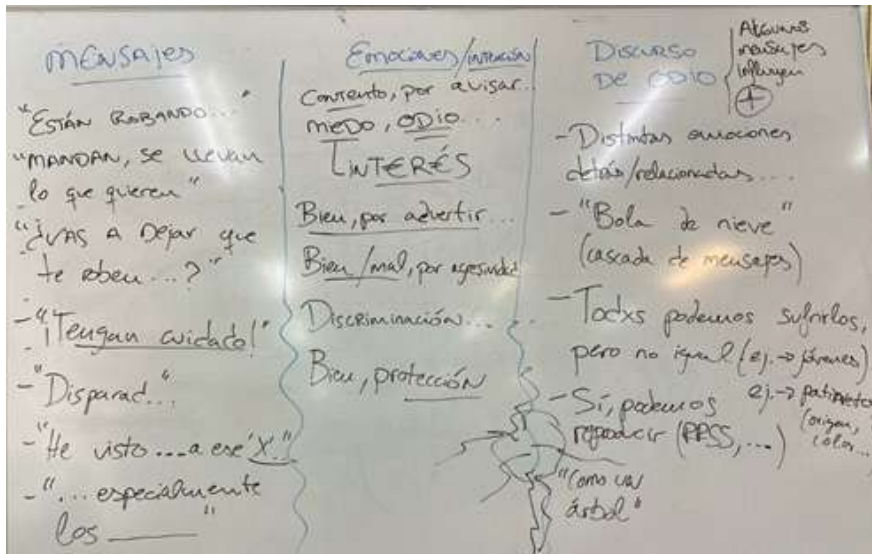 MENSAJES
"ESTÁN ROBANDO..."
"MANDAN, SE LLEVAN
lo que quieren"
"¿VAS A DEJAR que
te roben...?"
- "¡Tengan cuidado!"
- "Disparad..."
- "He visto... a ese 'X'."
- "... especialmente
los ____"
Emociones/intención
Contento, por avisar...
MIEDO, ODIO...
INTERÉS
Bien, por advertir...
Bien/mal, por
Discriminación...
Bien, protección
DISCURSO
DE ODIO
Algunos
mensajes
influyen
+
- Distintas emociones
detrás/relacionadas...
- "Bola de nieve"
(cascada de mensajes)
- Todxs podemos sufrirlos,
pero no igual (ej. → jóvenes)
ej. → patinete
(origen,
color...
- Sí, podemos
reproducir (RRSS, ...)
"Como un
árbol"